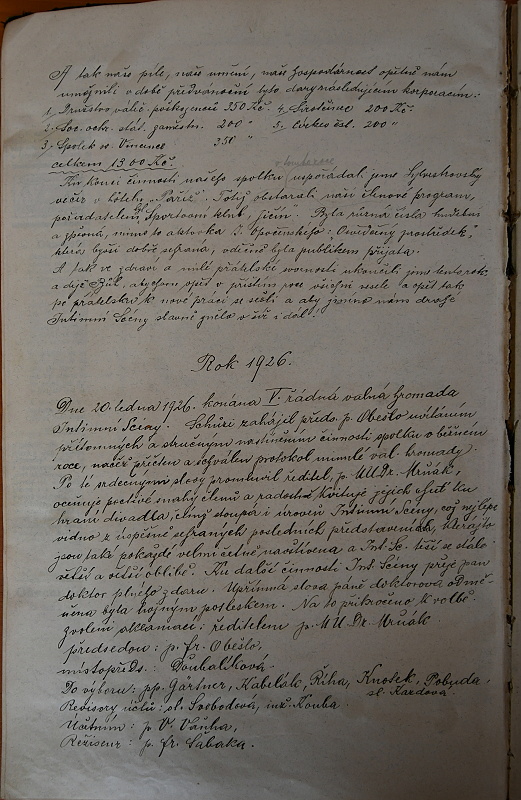 A tak naše píle, naše umění, naše hospodárnost opětně nám
umožnili v době předvánoční tyto dary následujícím korporacím:
1. Družstvo válič. poškozenců 350 Kč. 4. Sirotčinec 200 Kč.
2. Soc. ochr. stát. zaměstn. 200 " 5. Církev čsl. 200 "
3. Spolek sv. Vincence 350 "
celkem 1300 Kč.
Ku konci činnosti našeho spolku uspořádali jsme Sylvestrovský
večer v hotelu „Paříž". Totiž obstarali naši členové program,
pořadatelem Sportovní klub, Jičín. Byla různá čísla hudební
a zpěvná, mimo to aktovka "Osvědčený prostředek",
která byvši dobře sehrána, vděčně byla publikem přijata.
A tak ve zdraví a milé přátelské svornosti ukončili jsme tento rok
a dejž Bůh, abychom opět v příštím roce všichni vesele a opět tak
po přátelsku k nové práci se sešli a aby jméno nám drahé
Intimní Scény slavně znělo v šíř i dál!
Rok 1926.
Dne 20. ledna 1926 konána V. řádná valná hromada
Intimní Scény. Schůzi zahájil předs. p. Obešlo uvítáním
přítomných a stručným nastíněním činnosti spolku v běžném
roce, načež přečten a schválen protokol minulé val. hromady.
Po té srdečnými slovy promluvil ředitel, p. MUDr. Mrňák,
oceňuje poctivé snahy členů a radostně kvituje jejich chuť ku
hraní divadla, čímž stoupá i úroveň Intimní Scény, což nejlépe
vidno z úspěšně sehraných posledních představeních, kterážto
jsou také pokaždé velmi četně navštívena a Int. Sc. těší se stále
větší a větší oblibě. Ku další činnosti Int. Scény přeje pan
doktor plného zdaru. Upřímná slova páně doktorova odmě-
něna byla hojným potleskem. Na to přikročeno k volbě.
Zvoleni aklamací: ředitelem p. MUDr. Mrňák.
předsedou: p. Fr. Obešlo,
místopředs.: Doubalíková.
Do výboru: pp. Gärtner, Kabelák, Říha, Knotek, Pobuda,
sl. Kazdová.
Revisory účtů: sl. Svobodová, inž. Kouba.
Účetním: p. V. Vaňha,
Režiseur: p. Fr. Sabaka.